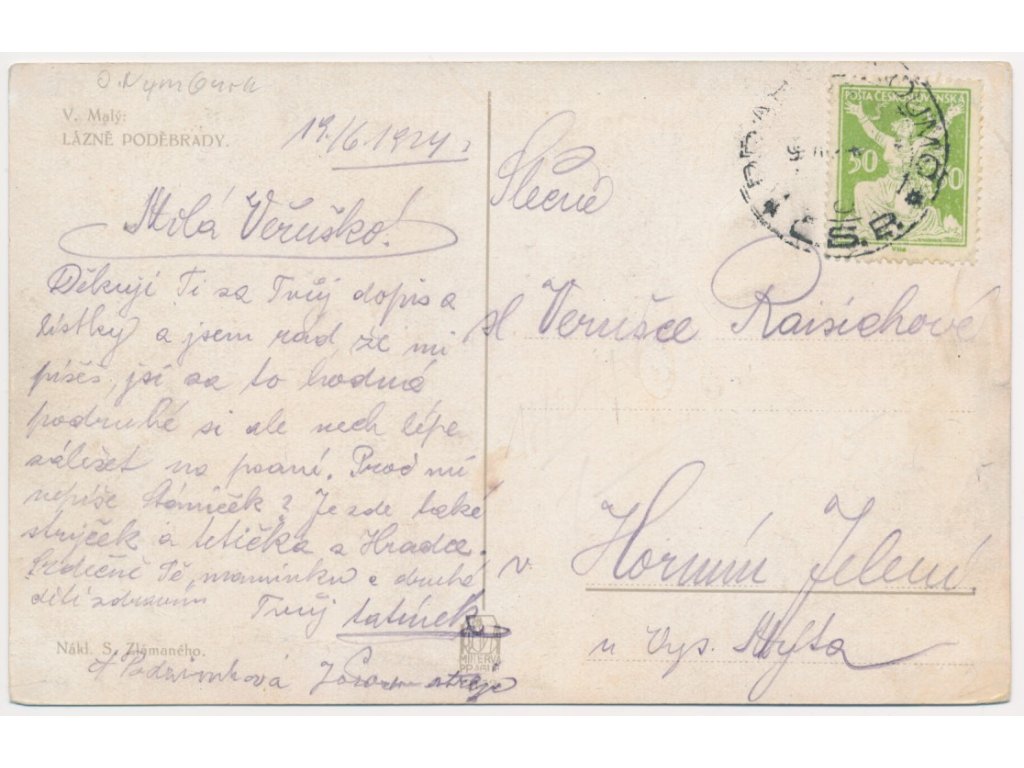 V. Malý:
LÁZNĚ PODĚBRADY.
19/6.1924
Milá Věruško!
Děkuji Ti za Tvůj dopis a
lístky a jsem rád že mi
píšeš, jsi za to hodná
podruhé si ale nech lépe
záležet na psaní. Proč mi
nepíše ? Je zde také
strýček a tetička z Hradce.
Srdečně Tě, maminku a druhé
děti zdravím
Tvůj tatínek
Nákl. S. Zlámaného.
MINERVA
Slečně
sl Verušce Raisichové
v Horním Jelení
u Vys. Mýta
POŠTA ČESKOSLOVENSKÁ
50 50
Č.S.R.